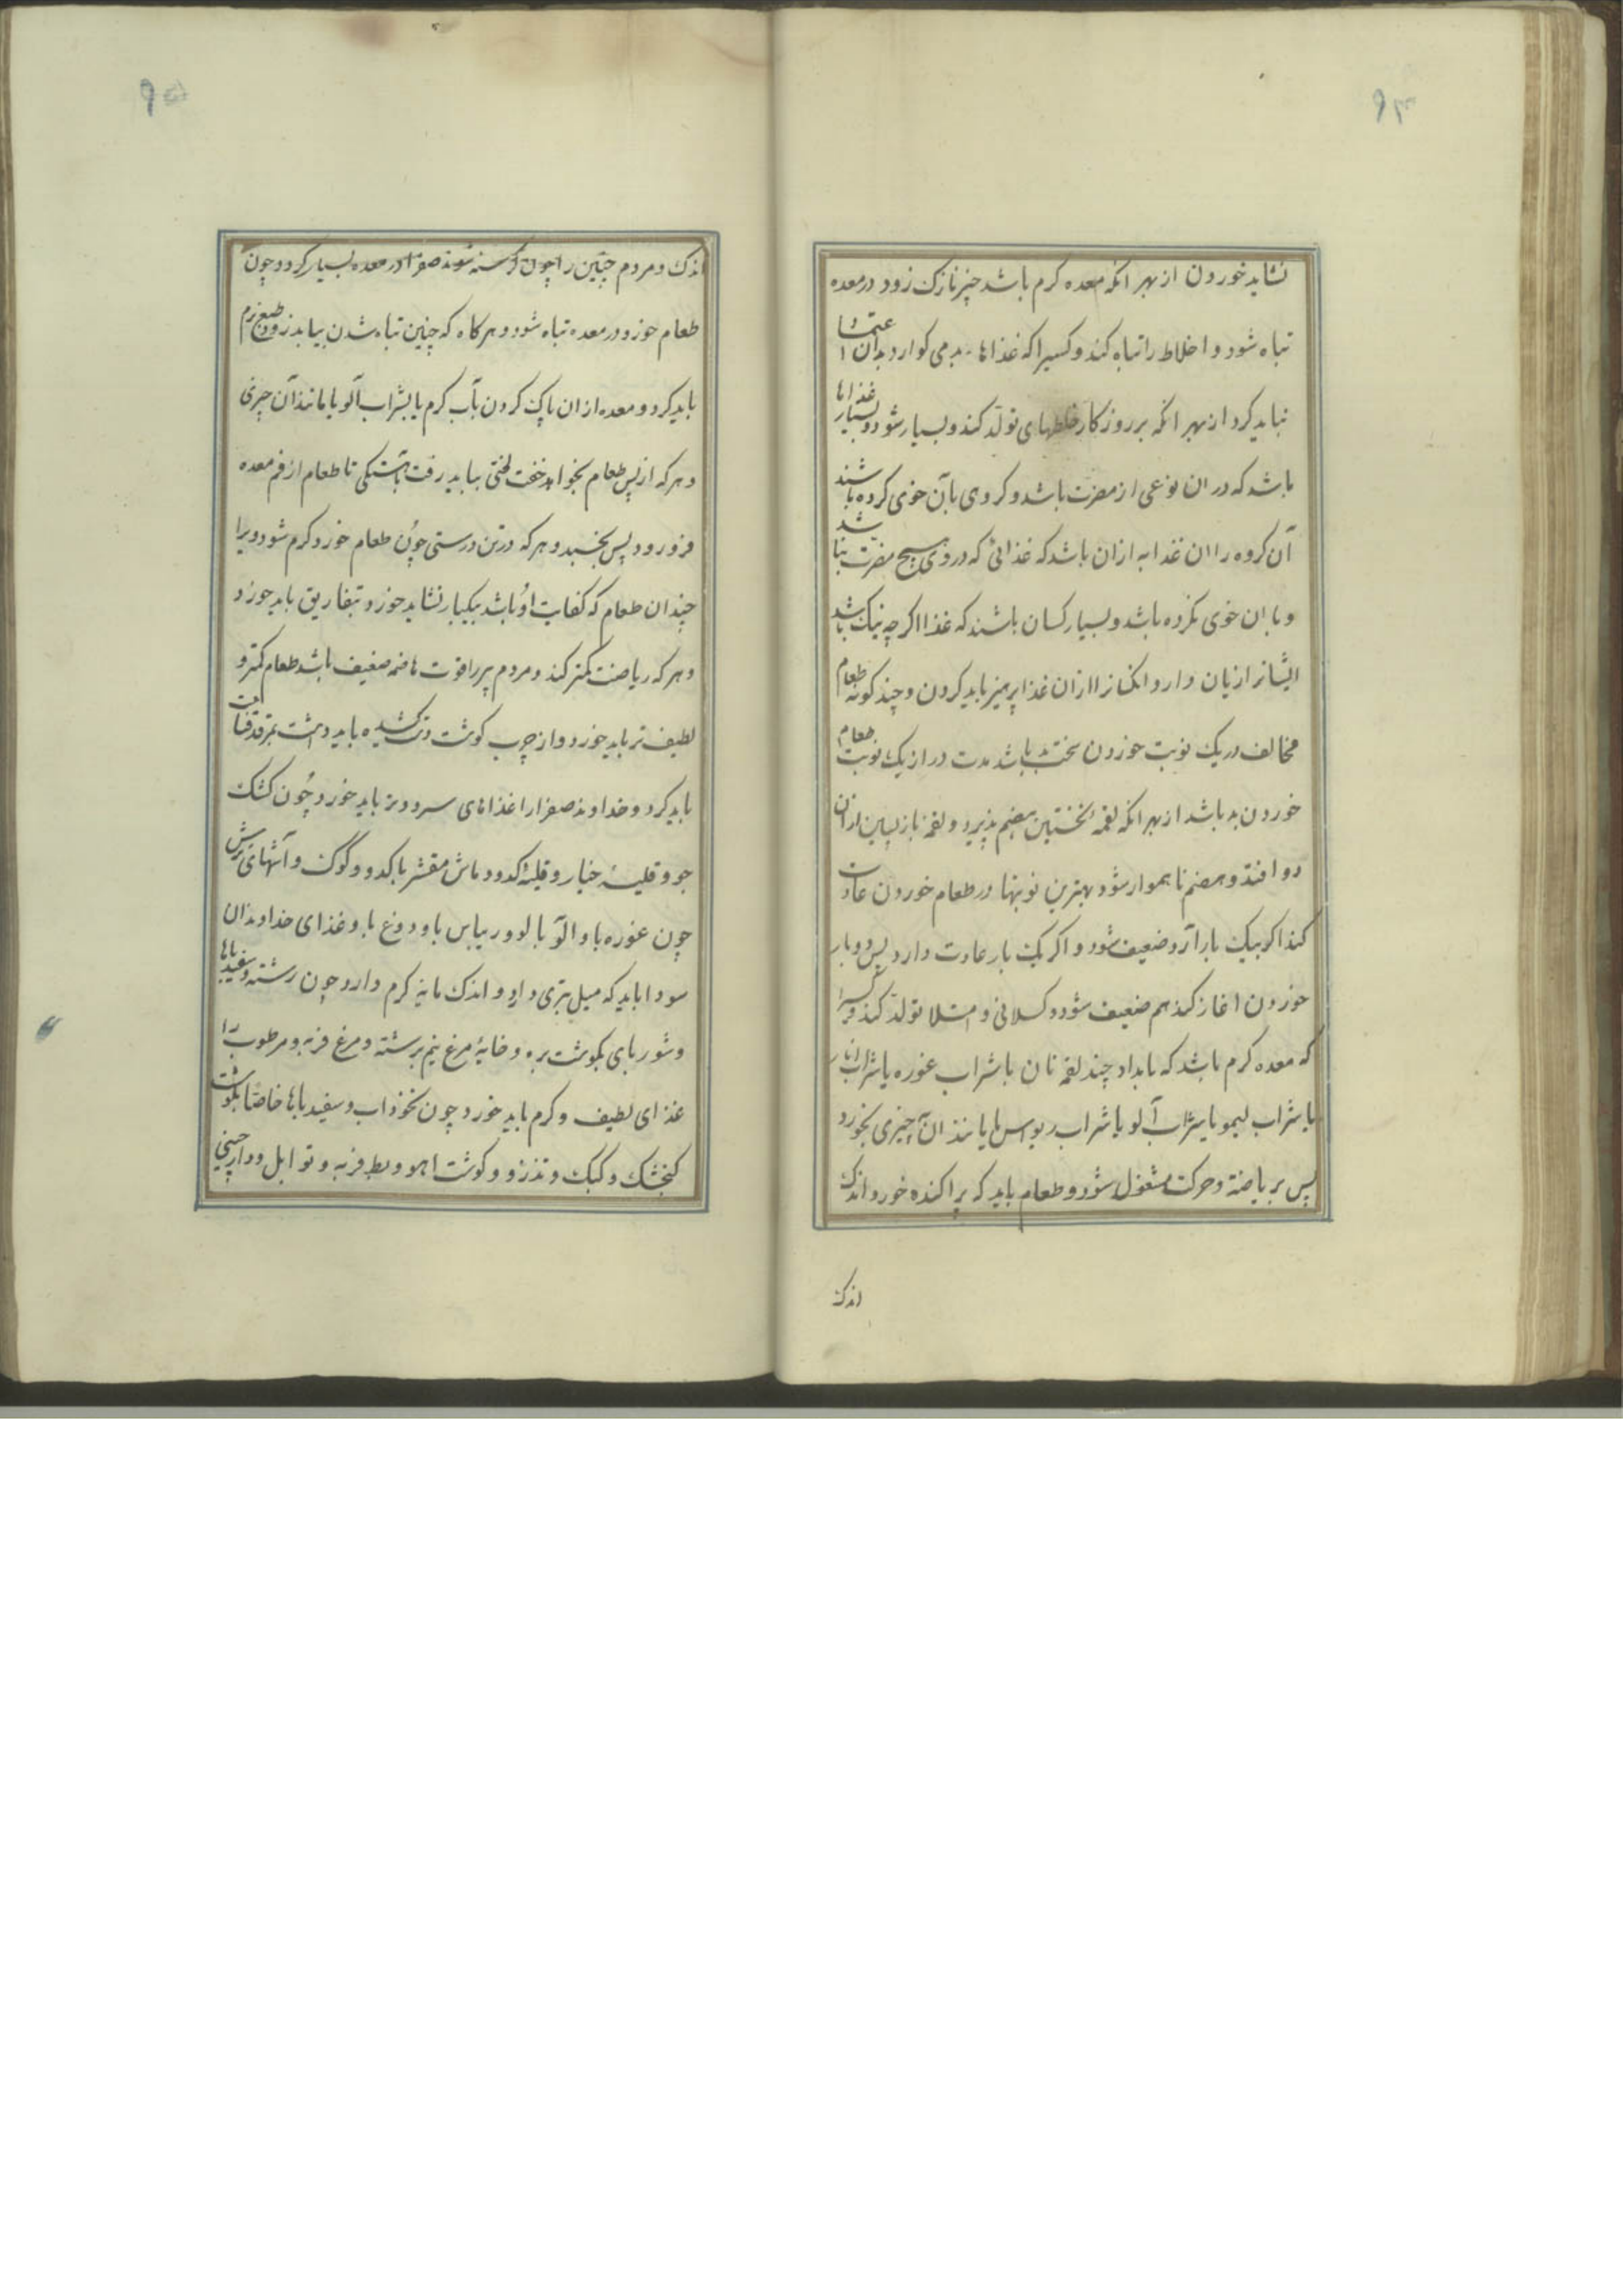 ۹۴
نشاید خوردن از بهر انکه معده کرم باشد چیز نازک زود در معده
تباه شود و اخلاط را تباه کند و کسیرا که غذاها بد می کوارد بدان اعتماد
نباید کرد از بهر انکه بروزکار خلطهای تولد کند و بسیار شود و بسیار غذاها
باشد که در ان نوعی از مضرت باشد و کروهی بآن خوی کرده باشند
آن کروه را ان غذا به ازان باشد که غذائی که در وی هیچ مضرت نباشد
و با ان خوی نکرده باشد و بسیار کسان باشند که غذا اکرچه نیک باشد
ایشانرا زیان دارد انکسانرا ازان غذا پرهیز باید کردن و چند کونه طعام
مخالف در یک نوبت خوردن سخت بد باشد مدت دراز یک نوبت طعام
خوردن بد باشد از بهر انکه لقمه نخستین هضم پذیرد و لقمه بازپسین ازان
دور افتد و هضم ناهموار شود بهترین نوبتها در طعام خوردن عادت
کند اکر بیک بار آرد ضعیف شود و اکر یک بار عادت دارد پس دو بار
خوردن اغاز کند هم ضعیف شود و کسلانی و امتلا تولد کند و هر کسیرا
که معده کرم باشد که بامداد چند لقمه نان با شراب غوره یا شراب انار
یا شراب لیمو یا شراب آلو یا شراب ریواس یا مانند ان چیزی بخورد
پس بریاضة و حرکت مشغول شود و طعام باید که پراکنده خورد اندک
اندک
۹۵
اندک و مردم چنین را چون کرسنه شوند صفرا در معده بسیار کردد چون
طعام خورد در معده تباه شود و هرکاه که چنین تباه شدن بیابد زود طبع نرم
باید کرد و معده از ان پاک کردن بآب کرم یا بشراب آلو یا مانند آن چیزی
و هرکه از پس طعام بخواهد خفت لختی بباید رفت بآهستکی تا طعام از فم معده
فرو رود پس بخسبد و هرکه در تن درستی چون طعام خورد کرم شود ویرا
چندان طعام که کفایت او باشد بیکبار نشاید خورد و بتفاریق باید خورد
و هرکه ریاضت کمتر کند و مردم پیر را قوت هاضمه ضعیف باشد طعام کمتر و
لطیف تر باید خورد و از چرب کوشت دست کشیده باید داشت بمرقه قناعت
باید کرد و خداوند صفرا را غذاهای سرد و تر باید خورد چون کشک
جو و قلیهٔ خیار و قلیهٔ کدو و ماش مقشر با کدو و کوک و آشهای ترش
چون غوره با و آلو با و ریباس با و دوغ با و غذای خداوندان
سودا باید که میل بتری دارد و اندک مایه کرم دارد چون رشته و سفیدباها
و شوربای بکوشت بره و خایهٔ مرغ نیم برشته و مرغ فربه و مرطوب را
غذای لطیف و کرم باید خورد چون نخوداب و سفیدباها خاصّا بکوشت
کنجشک و کبک و تذرو و کوشت اهو و بط فربه و توابل و دارچینی